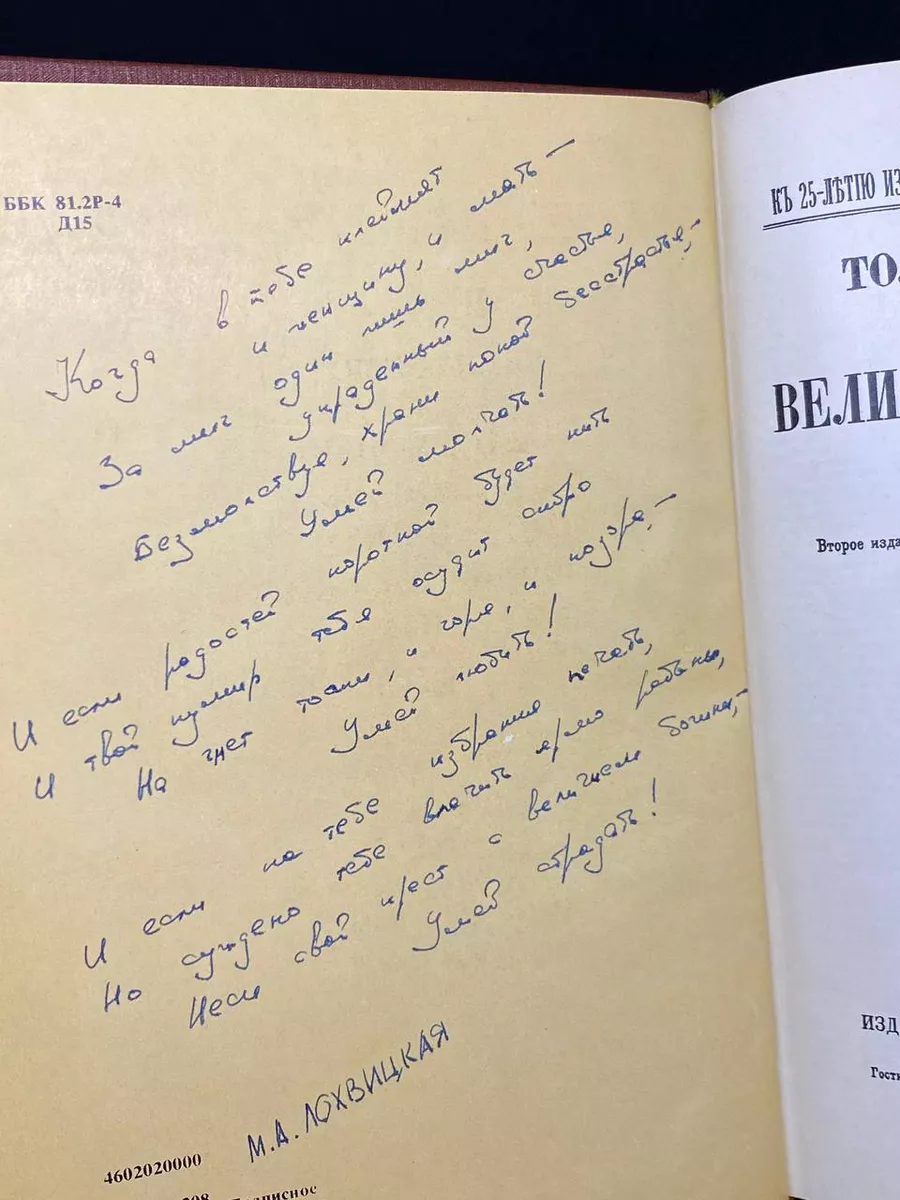 ББК 81.2Р-4
Д15
Когда в тебе клеймят
и женщину, и мать —
За миг один лишь миг,
украденный у счастья,
Безмолствуя, храни покой бесстрастья, —
Умей молчать!
И если радостей короткой будет нить
И твой кумир тебя осудит скоро
На гнет тоски, и горя, и позора, —
Умей любить!
И если на тебе избрания печать,
Но суждено тебе влачить ярмо рабыни,
Неси свой крест с величием богини, —
Умей страдать!
М.А. ЛОХВИЦКАЯ
4602020000
КЪ 25-ЛѢТІЮ ИЗ
ТОЛ
ВЕЛИ
Второе изда
ИЗД
Гости